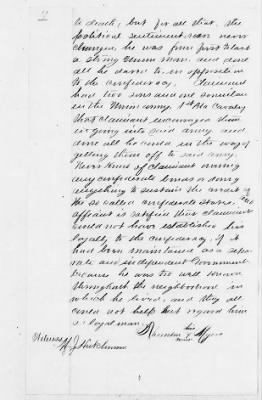 2
to death, but for all that, the
Political sentiment can never
change, he was from first to last
a strong Union man, and done
all he dared to in opposition
to the confederacy. Claimant
had two sons and one son in law
in the Union army, 1st Ala Cavalry
that claimant encouraged them
in going into said army and
done all he could in the way of
getting them off to said army.
Never knew of claimant owning
any confederate bonds or doing
anything to sustain the credit of
the so called confederate states. and
affiant is satisfied that claimant
could not have established his
loyalty to the confederacy, if it
had been maintained as a sepa-
rate and independent Government
because he was too well known
throughout the neighborhood in
which he lived, and they all
could not help but regard him
a loyal man.
his
Myers
mark
Witness
J Hutchinson